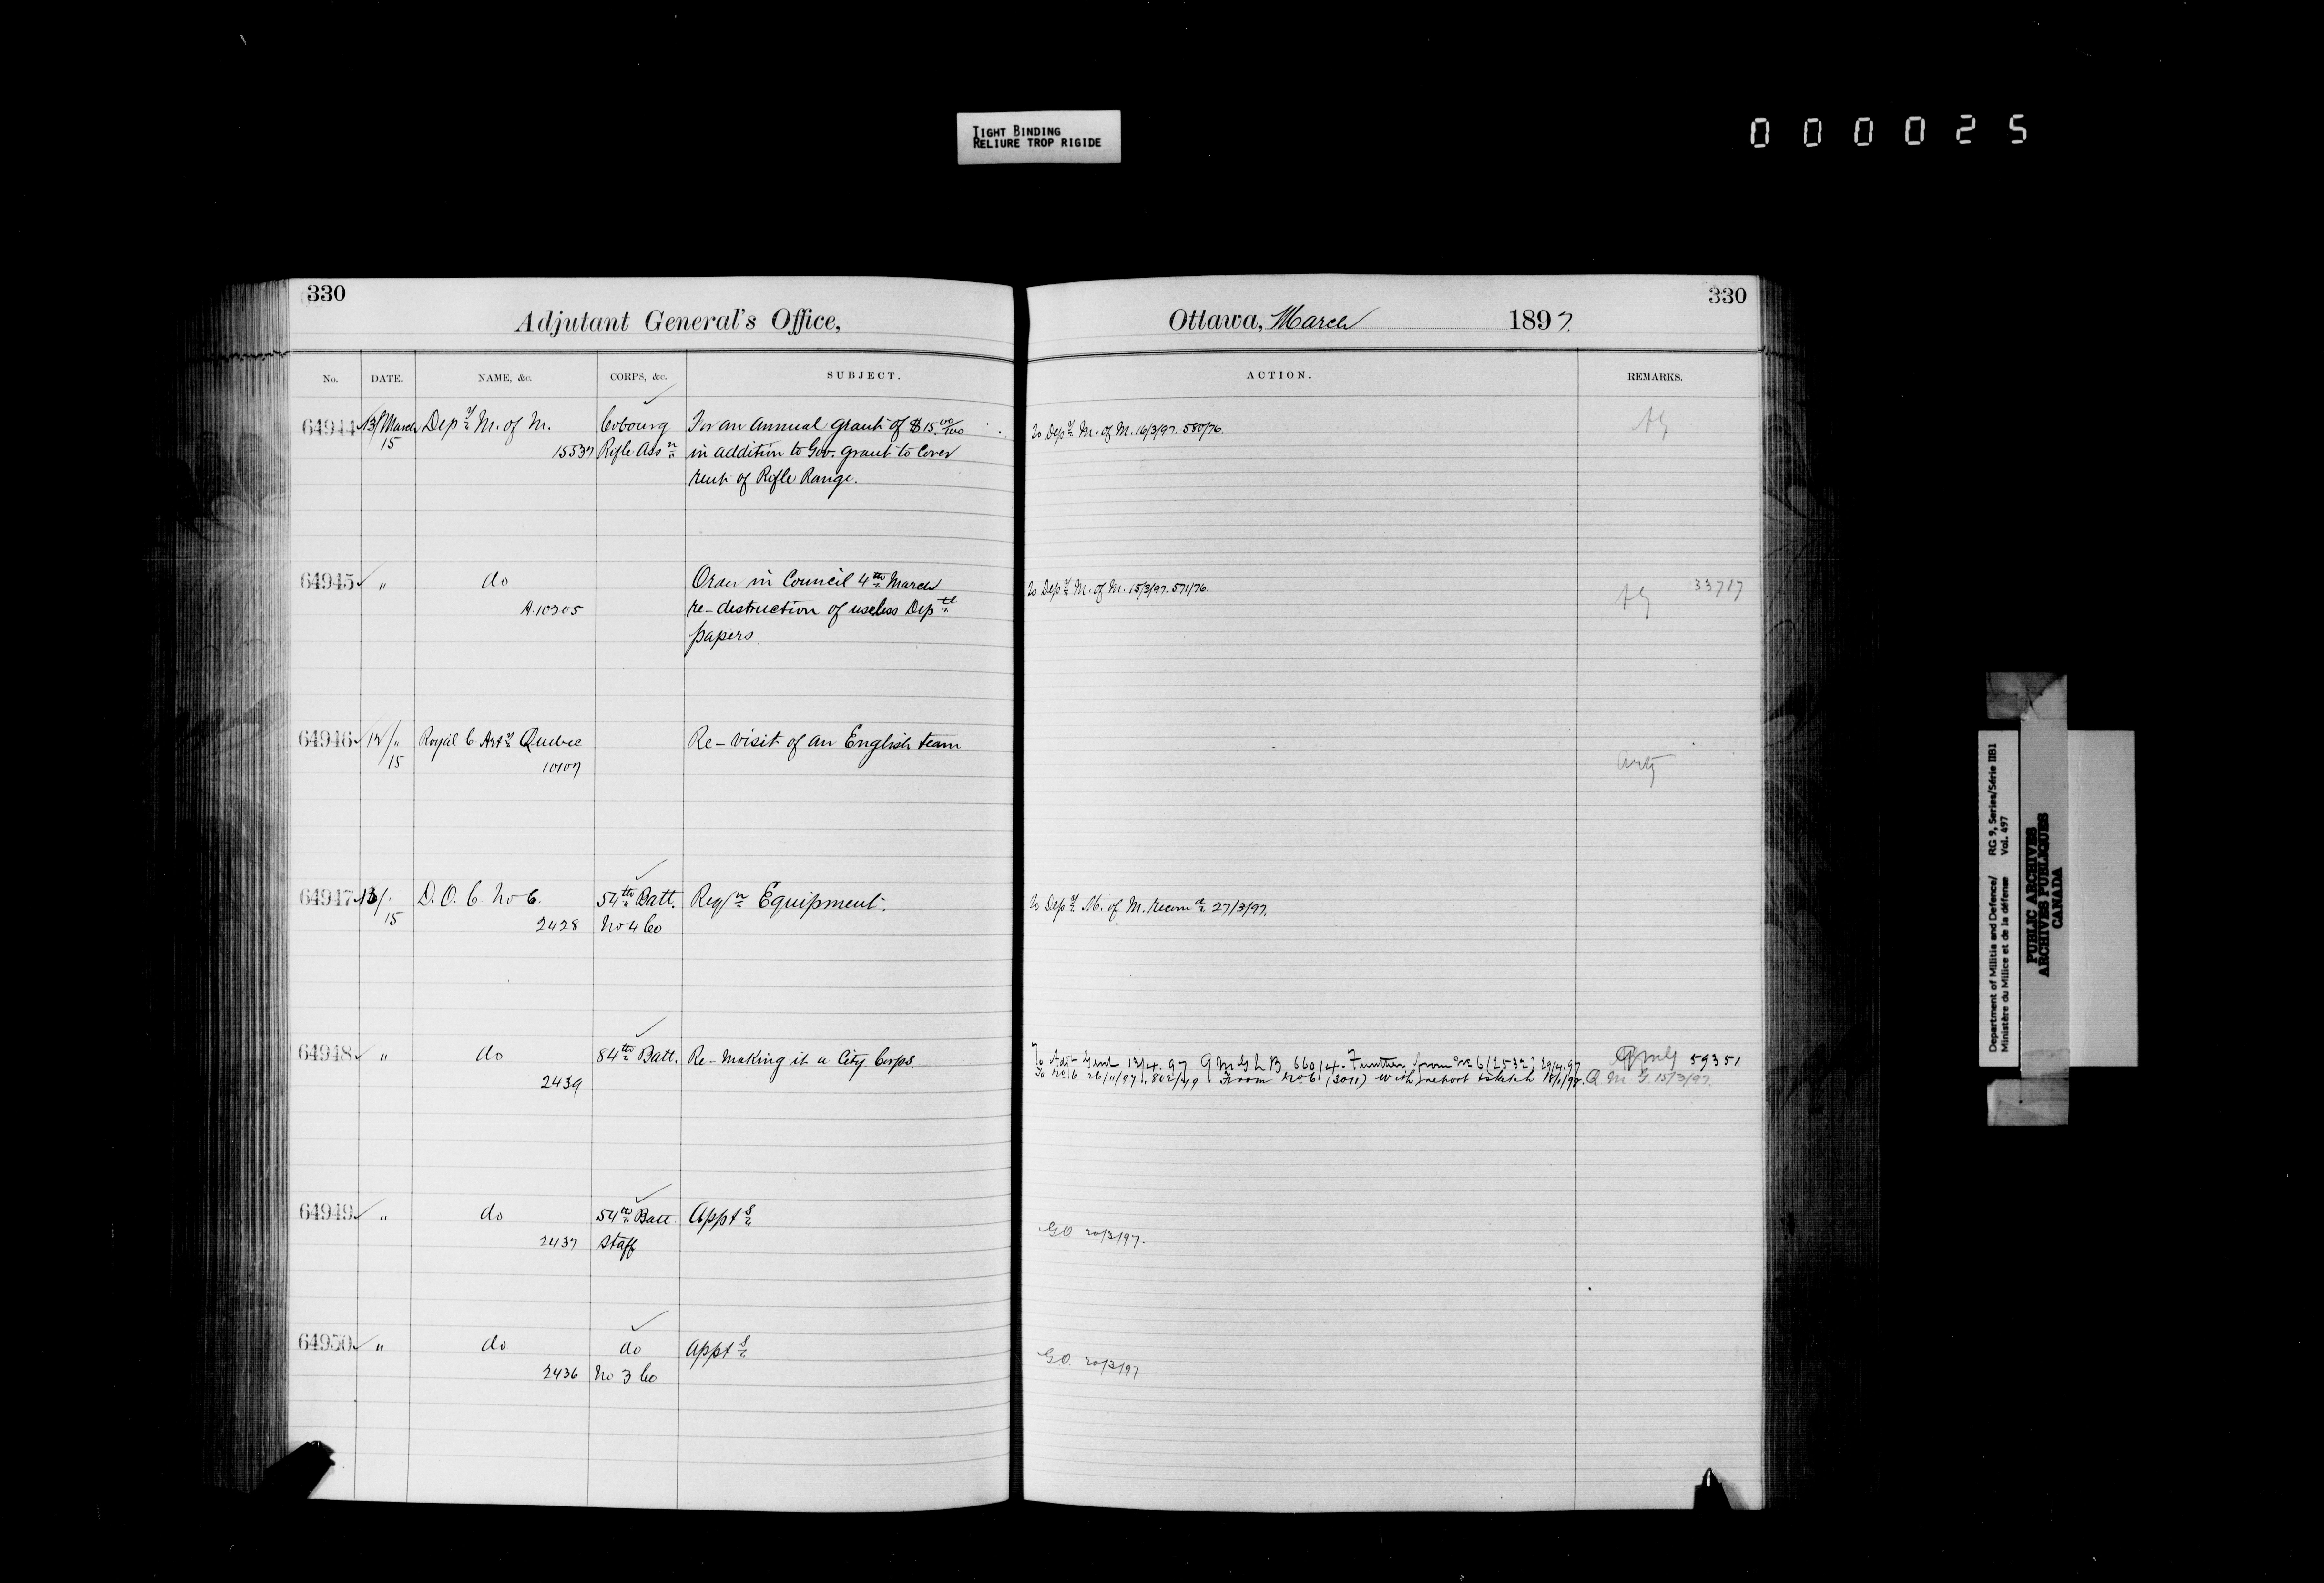 TIGHT BINDING
RELIURE TROP RIGIDE
000025
330
Adjutant General's Office,
No. DATE. NAME, &c. CORPS, &c. SUBJECT.
64944 13/March Depy M. of M. Cobourg For an annual grant of $15.00/100
15 15537 Rifle Assn in addition to Gov. grant to cover
rent of Rifle Range.
64945 " do Order in Council 4th March
A.10205 re-destruction of useless Deptl
papers.
64946 12/" Royal C. Arty Quebec Re-visit of an English team
15 10107
64947 13/" D.O.C. No 6. 54th Batt. Reqn Equipment.
15 2428 No 4 Co
64948 " do 84th Batt. Re-making it a City Corps.
2439
64949 " do 54th Batt. Appts
2437 Staff
64950 " do do Appts
2436 No 3 Co
330
Ottawa, March 1897.
ACTION. REMARKS.
To Depy M. of M. 16/3/97. 580/76. AG
To Depy M. of M. 15/3/97. 571/76. AG 33717
Arty
To Depy M. of M. recomd 27/3/97.
To Adjt Genl 13/4.97 QMGLB 660/4. Further from No 6 (2532) 29/4.97 QMG 59351
To No 6 26/11/97. 802/79 From No 6 (3011) with report & sketch 18/1/98. Q.M.G. 15/3/97.
GO 20/3/97.
GO. 20/3/97
Department of Militia and Defence/ RG 9, Series/Série IIB1
Ministère du Milice et de la défense Vol. 497
PUBLIC ARCHIVES
ARCHIVES PUBLIQUES
CANADA